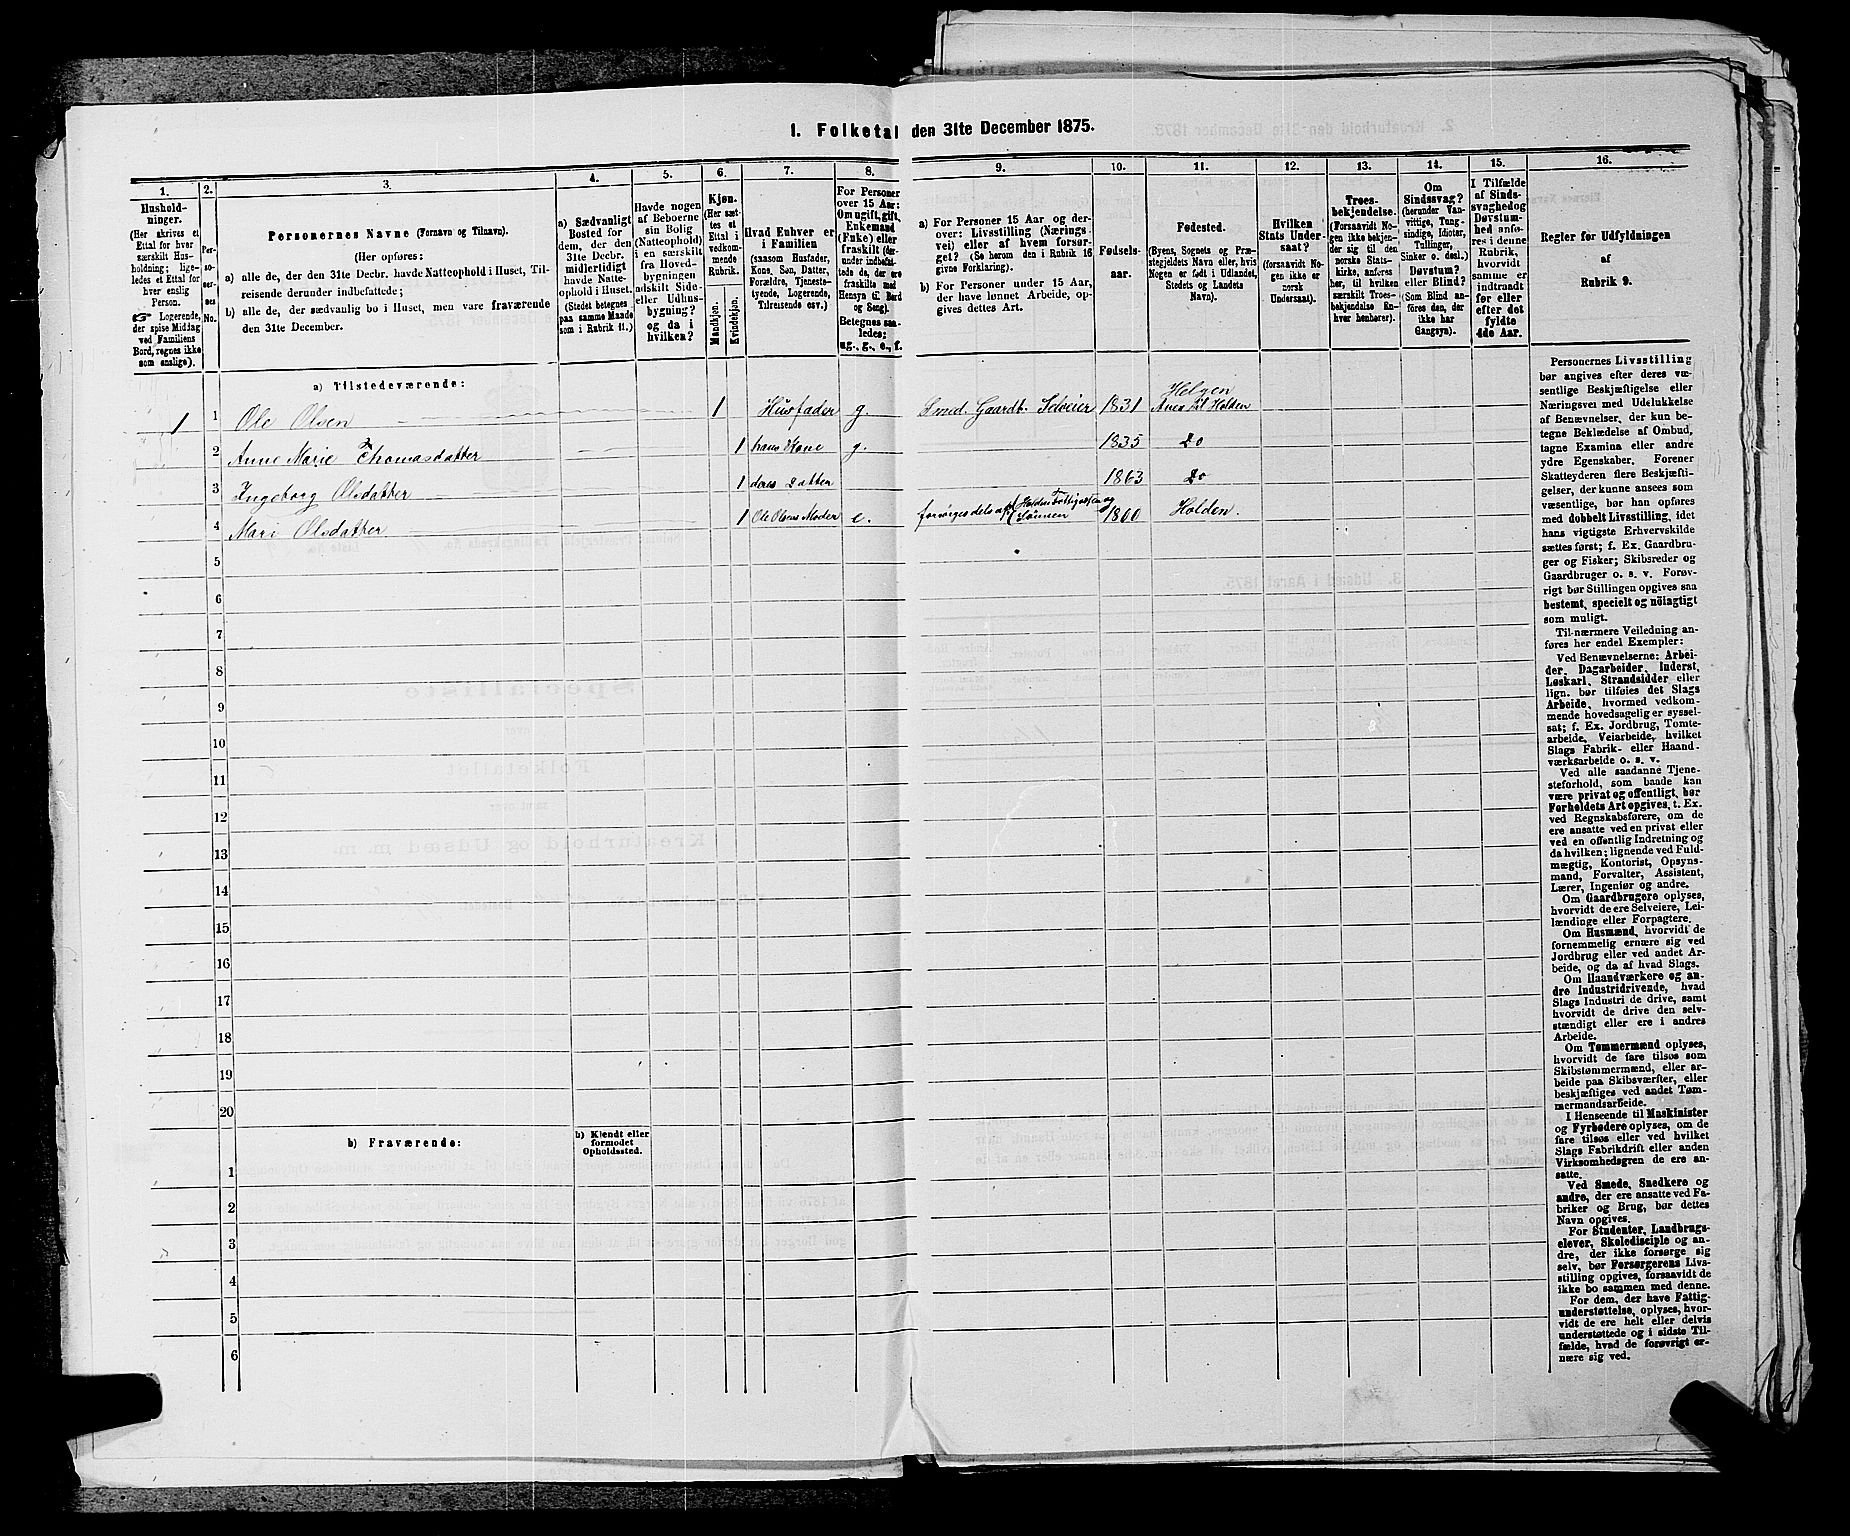 1. Folketal den 31te December 1875.
1.
2.
3.
4.
5.
6.
7.
8.
9.
10.
11.
12.
13.
14.
15.
16.
Hushold-
ninger.
(Her skrives et
Ettal for hver
særskilt Hus-
holdning; lige-
ledes et Ettal for
hver enslig
Person.
☞ Logerende,
der spise Middag
ved Familiens
Bord, regnes ikke
som enslige).
Per-
so-
ner-
nes
No.
Personernes Navne (Fornavn og Tilnavn).
(Her opføres:
a) alle de, der den 31te Decbr. havde Natteophold i Huset, Til-
reisende derunder indbefattede;
b) alle de, der sædvanlig bo i Huset, men vare fraværende
den 31te December.
a) Sædvanligt
Bosted for
dem, der den
31te Decbr.
midlertidigt
havde Natte-
ophold i Huset.
(Stedet betegnes
paa samme Maade
som i Rubrik 11.)
Havde nogen
af Beboerne
sin Bolig
(Natteophold)
i en særskilt
fra Hoved-
bygningen
adskilt Side-
eller Udhus-
bygning?
og da i
hvilken?
Kjøn.
(Her sæt-
tes et
Ettal i
vedkom-
mende
Rubrik.
Mandkjøn.
Kvindekjøn.
Hvad Enhver er
i Familien
(saasom Husfader,
Kone, Søn, Datter,
Forældre, Tjeneste-
tyende, Logerende,
Tilreisende osv.)
For Personer
over 15 Aar:
Om ugift, gift,
Enkemand
(Enke) eller
fraskilt (der-
under indbefat-
tede de, der ere
fraskilte med
Hensyn til Bord
og Seng).
Betegnes saa-
ledes:
ug., g., e., f.
a) For Personer 15 Aar og der-
over: Livsstilling (Nærings-
vei) eller af hvem forsør-
get? (Se herom den i Rubrik 16
givne Forklaring).
b) For Personer under 15 Aar,
der have lønnet Arbeide, op-
gives dettes Art.
Fødsels-
aar.
Fødested.
(Byens, Sognets og Præ-
stegjeldets Navn eller, hvis
Nogen er født i Udlandet,
Stedets og Landets
Navn).
Hvilken
Stats Under-
saat?
(forsaavidt No-
gen ikke er
norsk
Undersaat).
Troes-
bekjendelse.
(Forsaavidt No-
gen ikke bekjen-
der sig til den
norske Stats-
kirke, anføres
her, til hvilken
særskilt Troes-
bekjendelse En-
hver henhører).
Om
Sindssvag?
(herunder Van-
vittige, Tung-
sindige, Idioter,
Tullinger,
Sinker o. desl.)
Døvstum?
eller Blind?
(Som Blind an-
føres den, der
ikke har
Gangsyn).
I Tilfælde
af Sinds-
svaghed og
Døvstum-
hed anfø-
res i denne
Rubrik,
hvorvidt
samme er
indtraadt
før eller
efter det
fyldte
4de Aar.
Regler for Udfyldningen
af
Rubrik 9.
a) Tilstedeværende:
1 1 Ole Olsen 1 Husfader g. Smed. Gaardb. Selveier 1831 Helgen
Holden
2 Anne Marie Thomasdatter 1 hans Kone g. 1835 Do
3 Ingeborg Olsdatter 1 deres Datter 1863 Do
4 Mari Olsdatter 1 Ole Olsens Moder e. forsørges dels af Holdens Fattigvæsen og
Sønnen 1800 Holden.
5
6
7
8
9
10
11
12
13
14
15
16
17
18
19
20
b) Fraværende:
b) Kjendt eller
formodet
Opholdssted.
1
2
3
4
5
6
Personernes Livsstilling
bør angives efter deres væ-
sentlige Beskjæftigelse eller
Næringsvei med Udelukkelse
af Benævnelser, der kun be-
tegne Beklædelse af Ombud,
tagne Examina eller andre
ydre Egenskaber. Forener
Skatteyderen flere Beskjæfti-
gelser, der kunne ansees som
væsentlige, bør han opføres
med dobbelt Livsstilling, idet
hans vigtigste Erhvervskilde
sættes først; f. Ex. Gaardbru-
ger og Fisker; Skibsreder og
Gaardbruger o. s. v. Forøv-
rigt bør Stillingen opgives saa
bestemt, specielt og nöiagtigt
som muligt.
Til nærmere Veiledning an-
føres her endel Exempler:
Ved Benævnelserne: Arbei-
der, Dagarbeider, Inderst,
Løskarl, Strandsidder eller
lign. bør tilføies det Slags
Arbeide, hvormed vedkom-
mende hovedsagelig er syssel-
sat; f. Ex. Jordbrug, Tomte-
arbeide, Veiarbeide, hvilket
Slags Fabrik- eller Haand-
værksarbeide o. s. v.
Ved alle saadanne Tjene-
steforhold, som baade kan
være privat og offentligt, bør
Forholdets Art opgives, t. Ex.
ved Regnskabsførere, om de
ere ansatte ved en privat eller
ved en offentlig Indretning og
da hvilken; lignende ved Fuld-
mægtig, Kontorist, Opsyns-
mand, Forvalter, Assistent,
Lærer, Ingeniør og andre.
Om Gaardbrugere oplyses,
hvorvidt de ere Selveiere, Lei-
lændinge eller Forpagtere.
Om Husmænd, hvorvidt de
fornemmelig ernære sig ved
Jordbrug eller ved andet Ar-
beide, og da af hvad Slags.
Om Haandværkere og an-
dre Industridrivende, hvad
Slags Industri de drive, samt
hvorvidt de drive den selv-
stændigt eller ere i andres
Arbeide.
Om Tømmermænd oplyses,
hvorvidt de fare tilsøs som
Skibstømmermænd, eller ar-
beide paa Skibsværfter, eller
beskjæftiges ved andet Tøm-
mermandsarbeide.
I Henseende til Maskinister
og Fyrbødere oplyses, om de
fare tilsøs eller ved hvilket
Slags Fabrikdrift eller anden
Virksomhedsgren de ere an-
satte.
Ved Smede, Snedkere og
andre, der ere ansatte ved Fa-
briker og Brug, bør dettes
Navn opgives.
For Studenter, Landbrugs-
elever, Skoledisciple og an-
dre, der ikke forsørge sig
selv, bør Forsørgerens Livs-
stilling opgives, forsaavidt de
ikke bo sammen med denne.
For dem, der have Fattig-
understøttelse, oplyses, hvor-
vidt de ere helt eller delvis
understøttede og i sidste Til-
fælde, hvad de forøvrigt er-
nære sig ved.